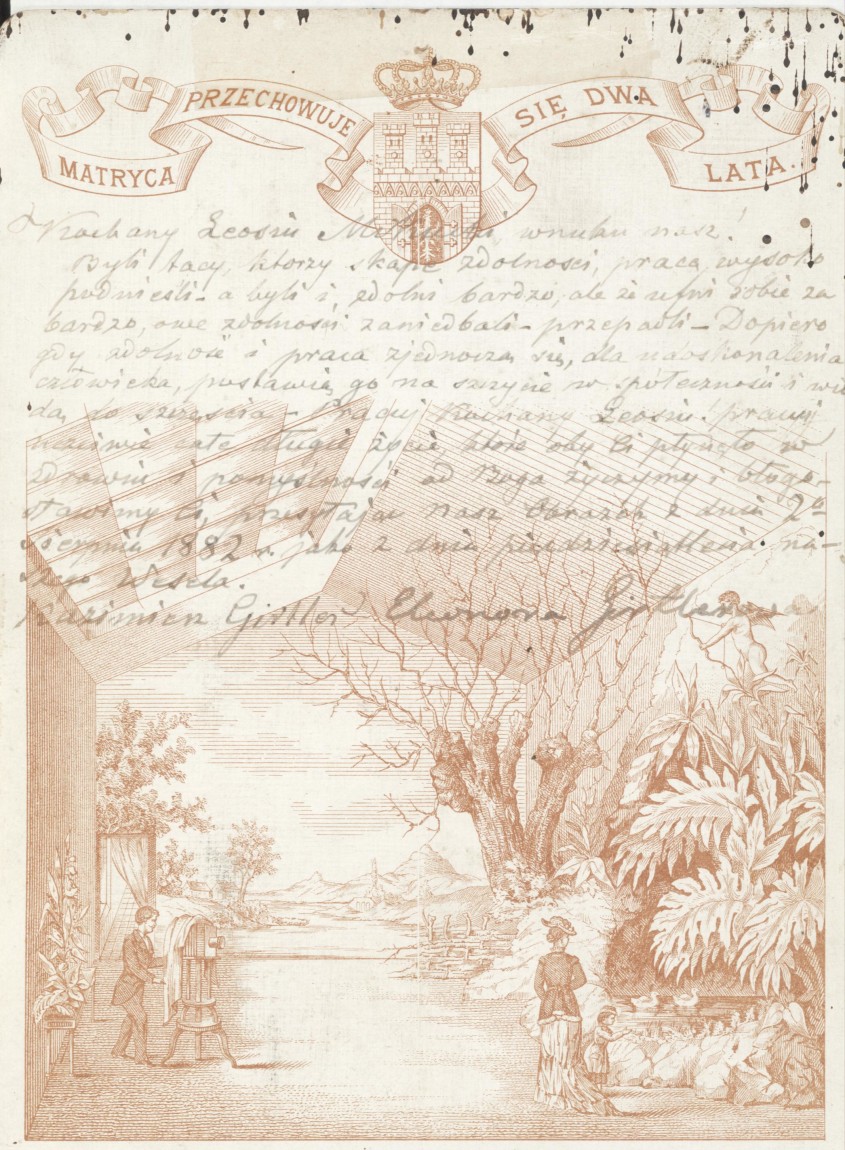 MATRYCA PRZECHOWUJE SIĘ DWA LATA.
Kochany Leosiu wnuku nasz!
Byli tacy, ktorzy skąpe zdolności, pracą wysoko
podnieśli - a byli i zdolni bardzo, ale że ufni sobie za
bardzo, owe zdolności zaniedbali - przepadli - Dopiero
gdy zdolność i praca zjednoczą się, dla udoskonalenia
człowieka, postawią go na szczycie w społeczności i wio
dą do szczęścia - Pracuj Kochany Leosiu! pracuj
uczciwie całe długie życie, które oby Ci płynęło w
zdrowiu i pomyślności od Boga życzymy i błogo-
sławimy Ci, przesyłając nasz Obrazek z dnia 2go
sierpnia 1882 r. jako z dnia pięćdziesięcolecia na-
szego Wesela.
Kazimierz Girtler Eleonora Girtlerowa